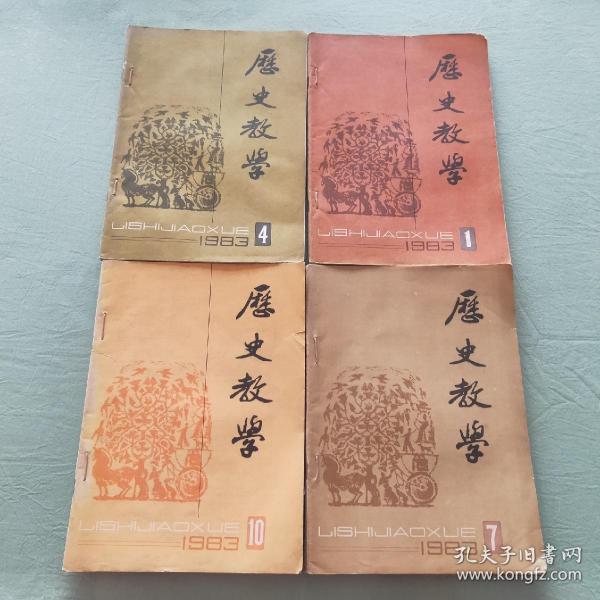 歷史教學
LISHIJIAOXUE
1983 4
歷史教學
LISHIJIAOXUE
1983 1
歷史教學
LISHIJIAOXUE
1983 10
歷史教學
LISHIJIAOXUE
1983 7
孔夫子旧书网
www.kongfz.com